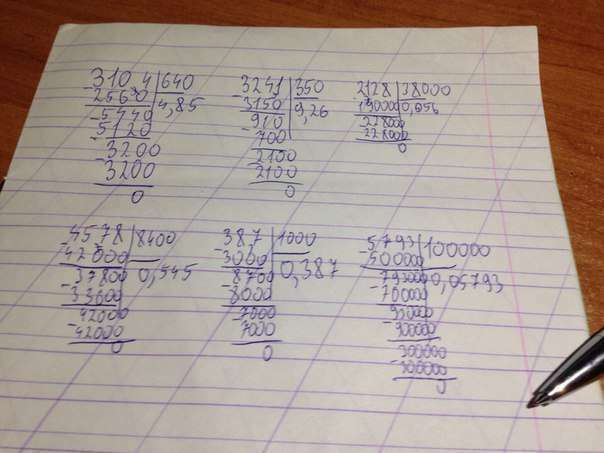 3104 640
-2560 4,85
-5440
5120
-3200
3200
0
3241 350
-3150 9,26
910
-700
2100
2100
0
2128 38000
190000 0,056
228000
228000
0
-4578 8400
42000 0,545
-37800
33600
-42000
42000
0
-387 1000
3000 0,387
-8700
8000
-7000
7000
0
5793 100000
-500000 0,05793
-793000
700000
-930000
900000
300000
-300000
0